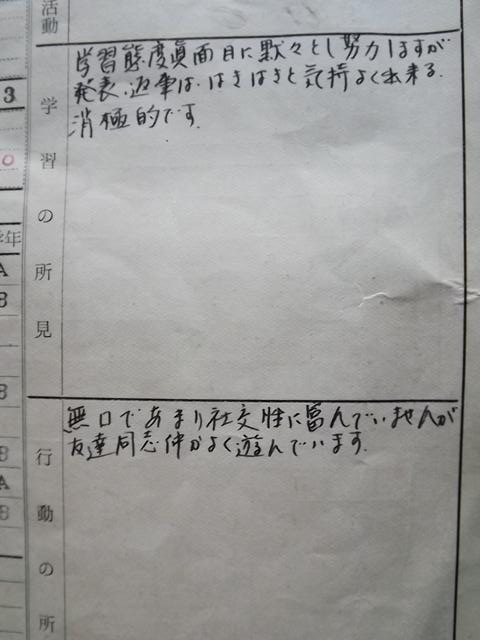 活動
学習の所見
学習態度真面目に黙々とし努力しますが
発表、返事は、はきはきと気持よく出来る.
消極的です.
行動の所
無口であまり社交性に富んでいませんが
友達同志仲かよく遊んでいます.
3
0
学年
A
B
B
B
A
B